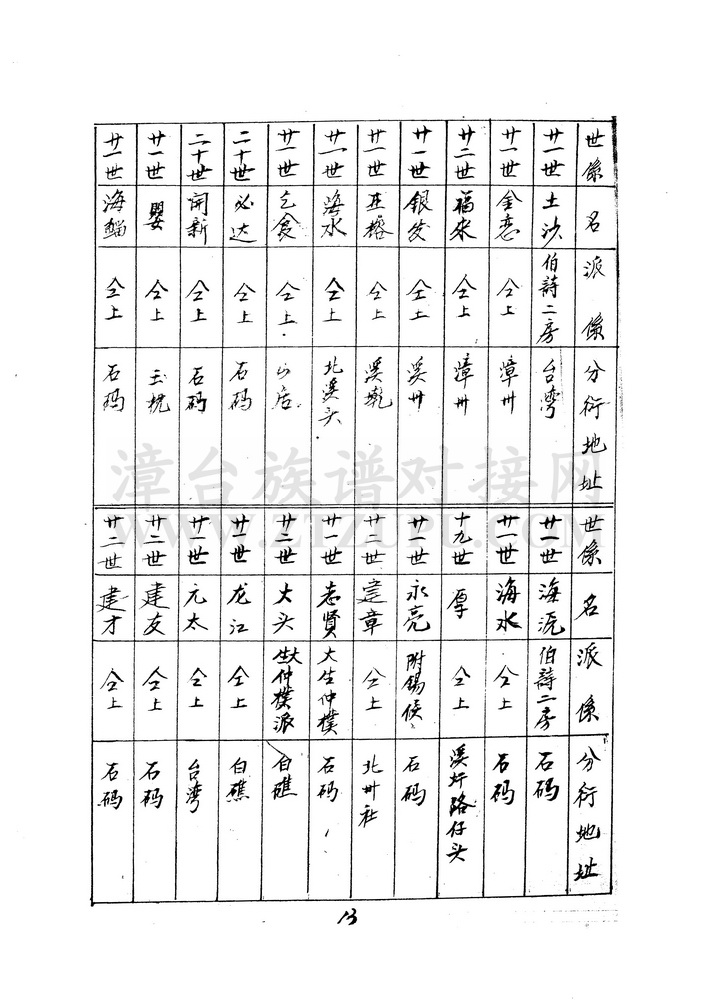 世係 名 派係 分衍地址
廿一世 土沙 伯詩二房 台湾
廿一世 金恋 仝上 漳州
廿二世 福来 仝上 漳州
廿一世 银 仝上 溪州
廿一世 亚榕 仝上 溪乾
廿一世 海水 仝上 北溪头
廿一世 乞食 仝上 山后
二十世 必达 仝上 石码
二十世 開新 仝上 石码
廿一世 婴 仝上 玉枕
廿一世 海 仝上 石码
世係 名 派係 分衍地址
廿一世 海 伯詩二房 石码
廿一世 海水 仝上 石码
十九世 厚 仝上 溪圩路仔头
廿一世 永亮 附錫侯 石码
廿二世 建章 仝上 北州社
廿一世 志贤 大生仲樸 石码
廿二世 大头 大生仲樸派 白礁
廿一世 龙江 仝上 白礁
廿一世 元太 仝上 台湾
廿二世 建友 仝上 石码
廿二世 建才 仝上 石码
13
漳台族谱对接网
WWW.ZTZUPU.COM